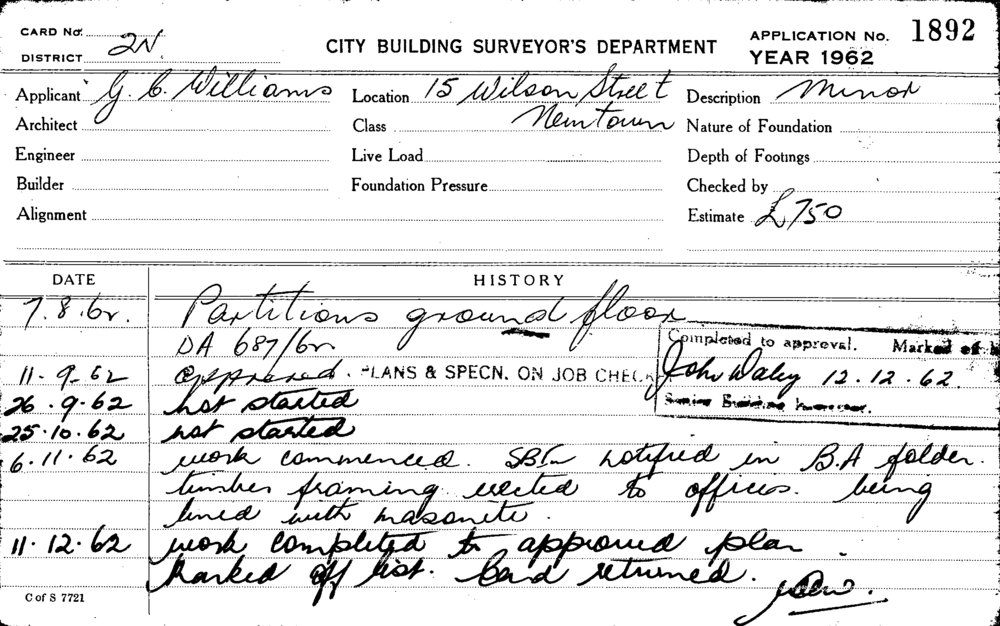 CARD No.
DISTRICT 2N
CITY BUILDING SURVEYOR'S DEPARTMENT
APPLICATION No. 1892
YEAR 1962
Applicant G. C. Williams
Location 15 Wilson Street
Newtown
Description Minor
Architect
Class
Nature of Foundation
Engineer
Live Load
Depth of Footings
Builder
Foundation Pressure
Checked by
Alignment
Estimate £750
DATE HISTORY
7.8.62. Partitions ground floor
DA 687/62
Completed to approval. Marked off
John Daley 12.12.62.
Senior Building Inspector.
11.9.62 approved. PLANS & SPECN. ON JOB CHEC
26.9.62 not started
25.10.62 not started
6.11.62 work commenced. notified in B.A folder.
timber framing erected to offices. being
lined with masonite.
11.12.62 work completed to approved plan.
Marked off list. Card returned.
C of S 7721